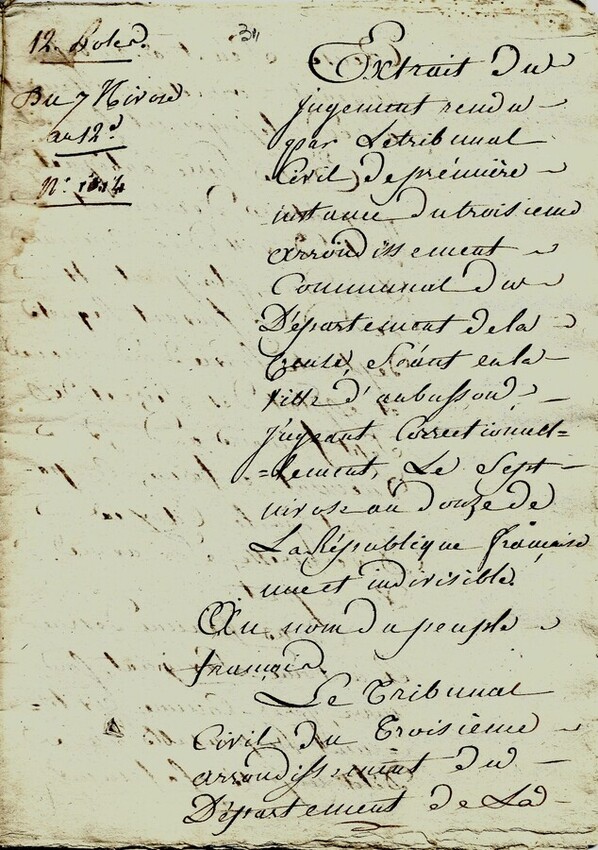 12. Roles.
Du 7 Nivose
an 12e
N.o 1014
311
Extrait du
jugement rendu
par Le tribunal
Civil de prémière
instance du troisieme
arrondissement
Communal du
Département de la
Creuse, Séant en la
ville d'aubusson,
jugeant Correctionnel=
=lement, Le Sept
nivose an douze de
La République française
une et indivisible.
Au nom du peuple
français.
Le Tribunal
Civil du Troisième
arrondissement du
Département de La